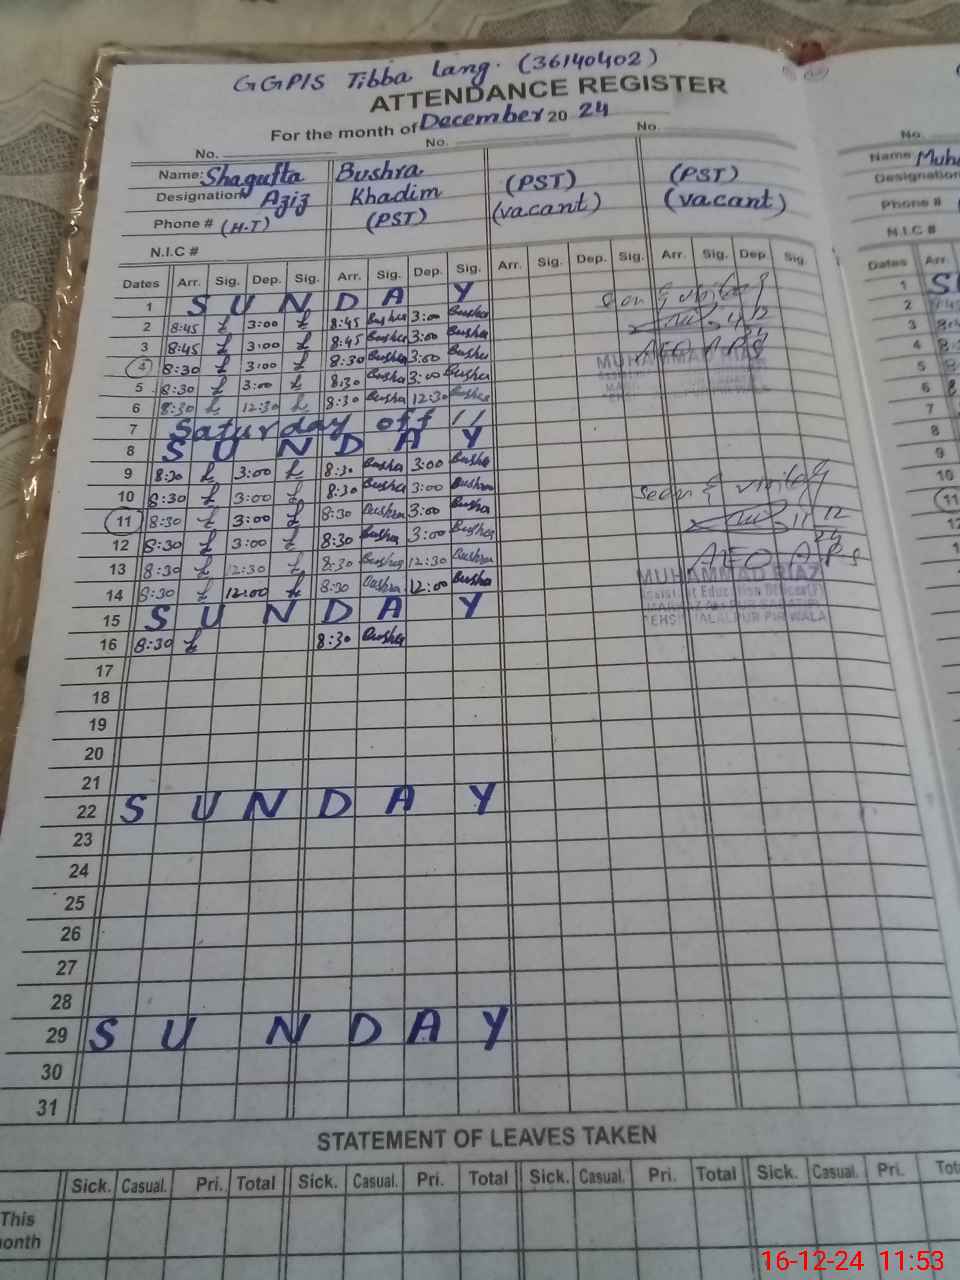 GGPIS Tibba Lang. (36140402)
ATTENDANCE REGISTER
For the month of December 20 24
No. No. No. No.
Name: Shagufta Bushra (PST) (PST) Name Muh
Designation Aziz Khadim (vacant) (vacant) Designation
Phone # (H.T) (PST) Phone #
N.I.C # N.I.C #
Dates Arr. Sig. Dep. Sig. Arr. Sig. Dep. Sig. Arr. Sig. Dep. Sig. Arr. Sig. Dep. Sig. Dates Arr.
1 SUNDAY 1 S
2 8:45 3:00 8:45 Bushra 3:00 Bushra 2
3 8:45 3:00 8:45 Bushra 3:00 Bushra 3
4 8:30 3:00 8:30 Bushra 3:00 Bushra 4
5 8:30 3:00 8:30 Bushra 3:00 Bushra 5
6 8:30 12:30 8:30 Bushra 12:30 Bushra 6
7 Saturday off !! 7
8 SUNDAY 8
9 8:30 3:00 8:30 Bushra 3:00 Bushra 9
10 8:30 3:00 8:30 Bushra 3:00 Bushra 10
11 8:30 3:00 8:30 Bushra 3:00 Bushra 11
12 8:30 3:00 8:30 Bushra 3:00 Bushra 12
13 8:30 12:30 8:30 Bushra 12:30 Bushra
14 8:30 12:00 8:30 Bushra 12:00 Bushra
15 SUNDAY
16 8:30 8:30 Bushra
MUHAMMAD RIAZ
Seen & visited
11 12
24
AEO
MUHAMMAD RIAZ
Assistant Education Officer
JALALPUR PIR WALA
17
18
19
20
21
22 SUNDAY
23
24
25
26
27
28
29 SUNDAY
30
31
STATEMENT OF LEAVES TAKEN
Sick. Casual. Pri. Total Sick. Casual. Pri. Total Sick. Casual. Pri. Total Sick. Casual. Pri. Tot
This
onth
16-12-24 11:53